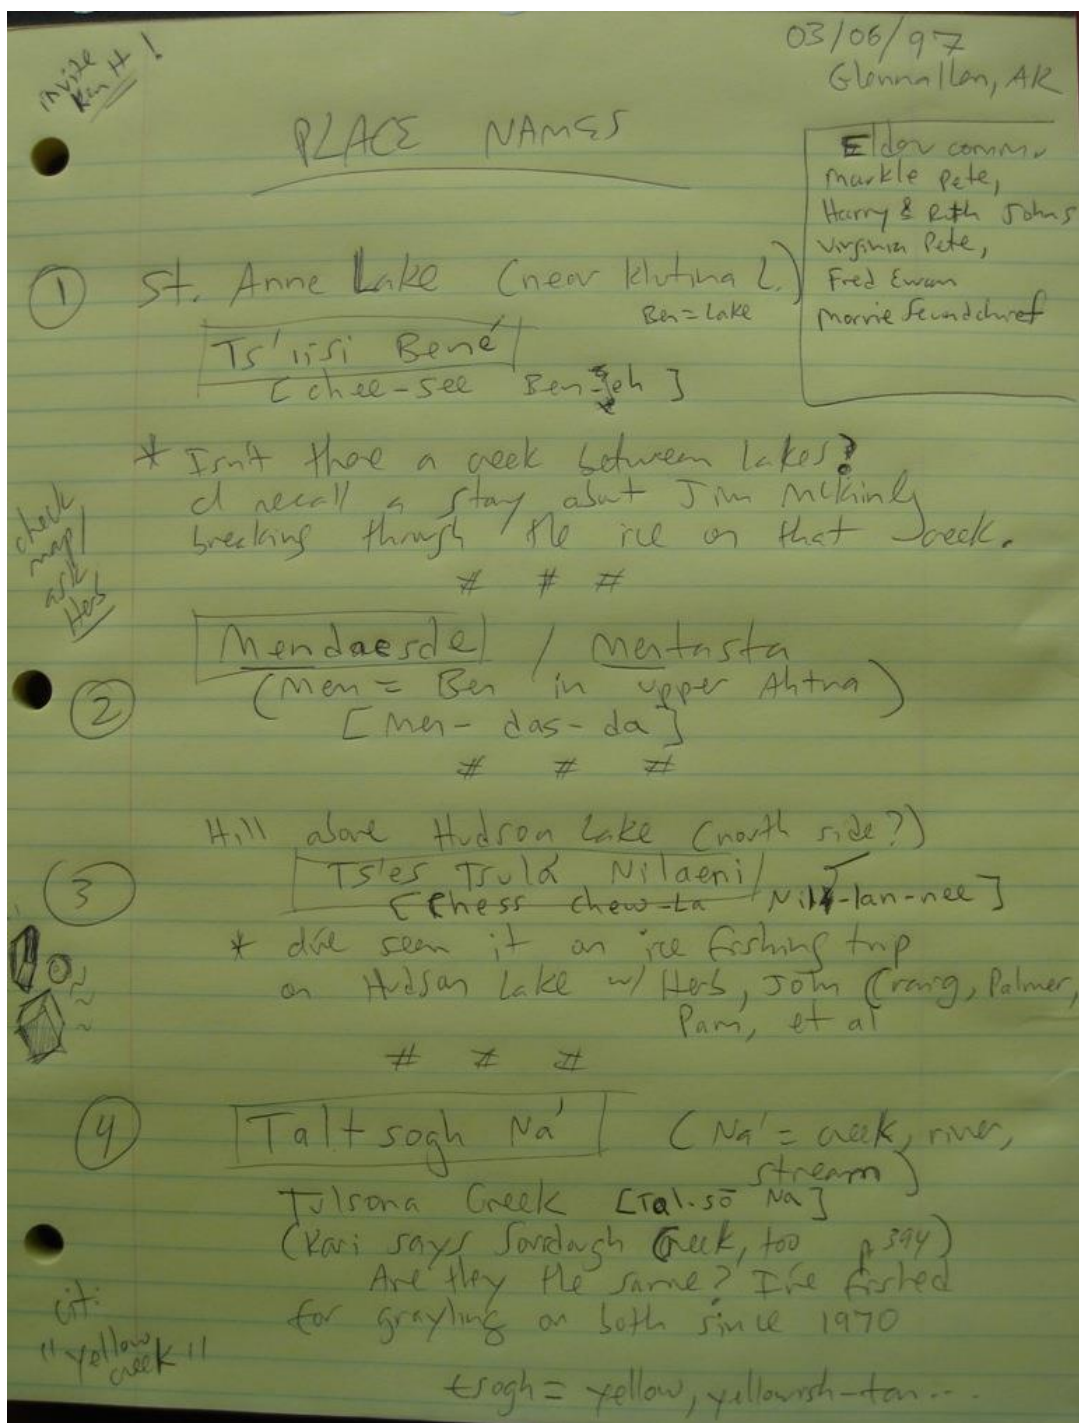 03/06/97
Glennallen, AK
invite
Ken H!
PLACE NAMES
Elder comm.
Markle Pete,
Harry & Ruth Johns
Virginia Pete,
Fred Ewan
Morrie Secondchief
① St. Anne Lake (near Klutina L.)
Ben = Lake
Ts'iisi Bené
[chee-see Ben-eh]
* Isn't there a creek between lakes?
I recall a story about Jim McKinley
breaking through the ice on that creek.
check
map/
ask
Herb
# # #
② Mendaesde / Mentasta
(Men = Ben in upper Ahtna)
[Men-das-da]
# # #
Hill above Hudson Lake (north side?)
③ Ts'es Tsulá Nilaeni
[Chess chew-la Nil-lan-nee]
* I've seen it on ice fishing trip
on Hudson Lake w/ Herb, John Craig, Palmer,
Pam, et al
# # #
④ Taltsogh Na' (Na' = creek, river,
stream)
Tulsona Creek [Tal-so Na]
(Kari says Sourdough Creek, too p 394)
Are they the same? I've fished
for grayling on both since 1970
cit:
"yellow
creek"
tsogh = yellow, yellowish-tan...